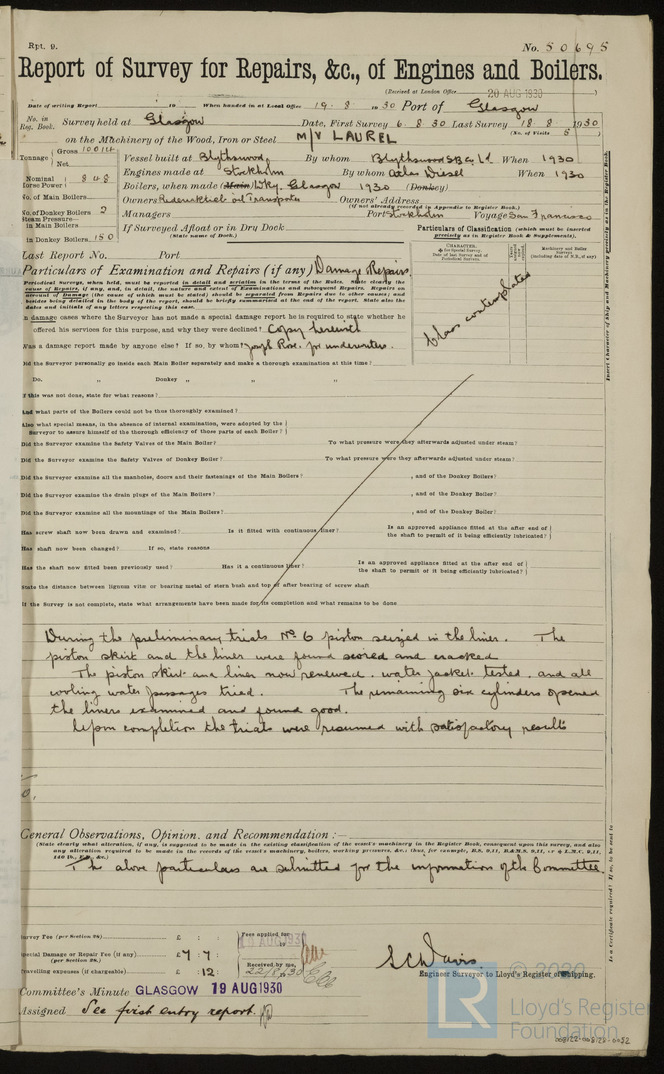 Rpt. 9.
No. 50695
Report of Survey for Repairs, &c., of Engines and Boilers.
(Received at London Office 20 AUG 1930)
Date of writing Report 19 When handed in at Local Office 19. 8 19 30 Port of Glasgow
No. in Reg. Book. Survey held at Glasgow Date, First Survey 6. 8. 30 Last Survey 18. 8 1930
(No. of Visits 5)
on the Machinery of the Wood, Iron or Steel M/V LAUREL
Tonnage Gross
Net
Vessel built at Blythswood By whom Blythswood S.B. Co. Ld. When 1930
Engines made at Stockholm By whom Atlas Diesel When 1930
Nominal Horse Power 848
Boilers, when made (Main) Glasgow 1930 (Donkey)
No. of Main Boilers
Owners Owners' Address
(if not already recorded in Appendix to Register Book.)
No. of Donkey Boilers 2
Managers Port Stockholm Voyage San Francisco
Steam Pressure in Main Boilers
in Donkey Boilers 150
If Surveyed Afloat or in Dry Dock
(State name of Dock.)
Particulars of Classification (which must be inserted precisely as in Register Book & Supplements).
Last Report No. Port
Particulars of Examination and Repairs (if any) Damage Repairs.
Class contemplated
Periodical Surveys, when held, must be reported in detail and seriatim in the terms of the Rules. State clearly the
cause of Repairs, if any, and, in detail, the nature and extent of Examinations and subsequent Repairs. Repairs on
account of Damage (the cause of which must be stated) should be separated from Repairs due to other causes; and
besides being detailed in the body of the report, should be briefly summarised at the end of the report. State also the
dates and initials of any letters respecting this case.
In damage cases where the Surveyor has not made a special damage report he is required to state whether he
offered his services for this purpose, and why they were declined? Copy herewith
Was a damage report made by anyone else? If so, by whom? Joseph Rose. for underwriters.
Did the Surveyor personally go inside each Main Boiler separately and make a thorough examination at this time?
Do. " Donkey " " "
If this was not done, state for what reasons?
And what parts of the Boilers could not be thus thoroughly examined?
Also what special means, in the absence of internal examination, were adopted by the
Surveyor to assure himself of the thorough efficiency of those parts of each Boiler?
Did the Surveyor examine the Safety Valves of the Main Boiler? To what pressure were they afterwards adjusted under steam?
Did the Surveyor examine the Safety Valves of Donkey Boiler? To what pressure were they afterwards adjusted under steam?
Did the Surveyor examine all the manholes, doors and their fastenings of the Main Boilers? , and of the Donkey Boilers?
Did the Surveyor examine the drain plugs of the Main Boilers? , and of the Donkey Boiler?
Did the Surveyor examine all the mountings of the Main Boilers? , and of the Donkey Boiler?
Has screw shaft now been drawn and examined? Is it fitted with continuous liner? Is an approved appliance fitted at the after end of the shaft to permit of it being efficiently lubricated?
Has shaft now been changed? If so, state reasons
Has the shaft now fitted been previously used? Has it a continuous liner? Is an approved appliance fitted at the after end of the shaft to permit of it being efficiently lubricated?
State the distance between lignum vitæ or bearing metal of stern bush and top of after bearing of screw shaft
If the Survey is not complete, state what arrangements have been made for its completion and what remains to be done
During the preliminary trials No 6 piston seized in the liner. The
piston skirt and the liner were found scored and cracked
The piston skirt and liner now renewed. water jacket tested. and all
cooling water passages tried. The remaining six cylinders opened
the liners examined and found good.
Upon completion the trials were resumed with satisfactory results
General Observations, Opinion, and Recommendation:—
(State clearly what alteration, if any, is suggested to be made in the existing classification of the vessel's machinery in the Register Book, consequent upon this survey, and also
any alteration required to be made in the records of the vessel's machinery, boilers, working pressures, &c.; thus, for example, B.S. 9,11, B.&M.S. 9,11, or L.M.C. 9,11,
140 lb., F.D., &c.)
The above particulars are submitted for the information of the Committee.
Survey Fee (per Section 28) £ : :
Fees applied for AUG 1930
Special Damage or Repair Fee (if any) (per Section 28.) £7 : 7 :
Travelling expenses (if chargeable) £ : 12 :
Received by me, 22/8/30
S C Davis
Engineer Surveyor to Lloyd's Register of Shipping.
Committee's Minute GLASGOW 19 AUG 1930
Assigned See first entry report.
© 2020
LR Lloyd's Register
Foundation